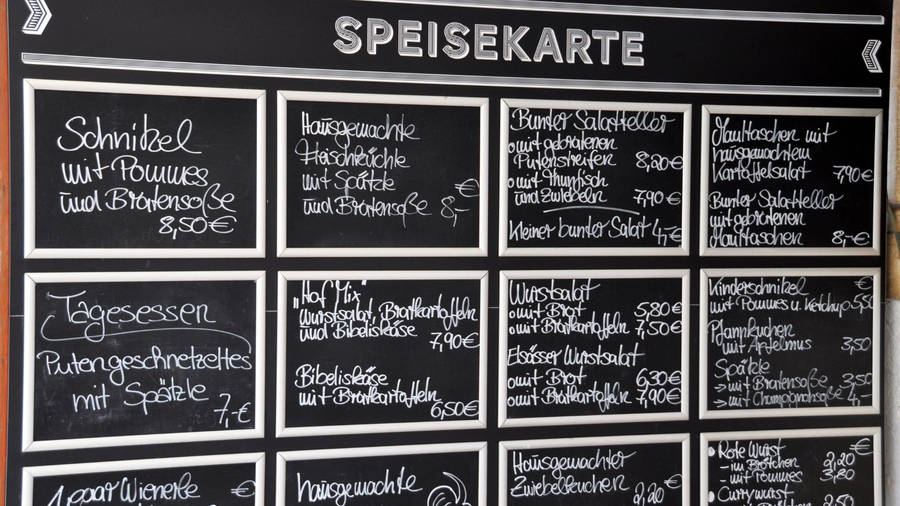 SPEISEKARTE
Schnitzel
mit Pommes
und Bratensoße
8,50€
Hausgemachte
Fleischküchle
mit Spätzle €
und Bratensoße 8,-
Bunter Salatteller
• mit gebratenen
Putenstreifen 8,20€
• mit Thunfisch
und Zwiebeln 7,90€
Kleiner bunter Salat 4,-€
Maultaschen mit
hausgemachtem
Kartoffelsalat 7,90€
Bunter Salatteller
mit gebratenen
Maultaschen 8,-€
Tagesessen
Putengeschnetzeltes
mit Spätzle
7,-€
"Hof Mix"
Wurstsalat, Bratkartoffeln
und Bibeliskäse
7,90€
Bibeliskäse
mit Bratkartoffeln
6,50€
Wurstsalat
• mit Brot 5,80€
• mit Bratkartoffeln 7,50€
Elsässer Wurstsalat
• mit Brot 6,30€
• mit Bratkartoffeln 7,90€
Kinderschnitzel €
mit Pommes u. Ketchup 5,50
Pfannkuchen
mit Apfelmus 3,50
Spätzle
> mit Bratensoße 3,50
> mit Champignonsoße 4,-
1 paar Wienerle €
hausgemachte
Hausgemachter
Zwiebelkuchen
2,20€
• Rote Wurst €
- im Brötchen 2,20
- mit Pommes 3,80
• Currywurst
2,50